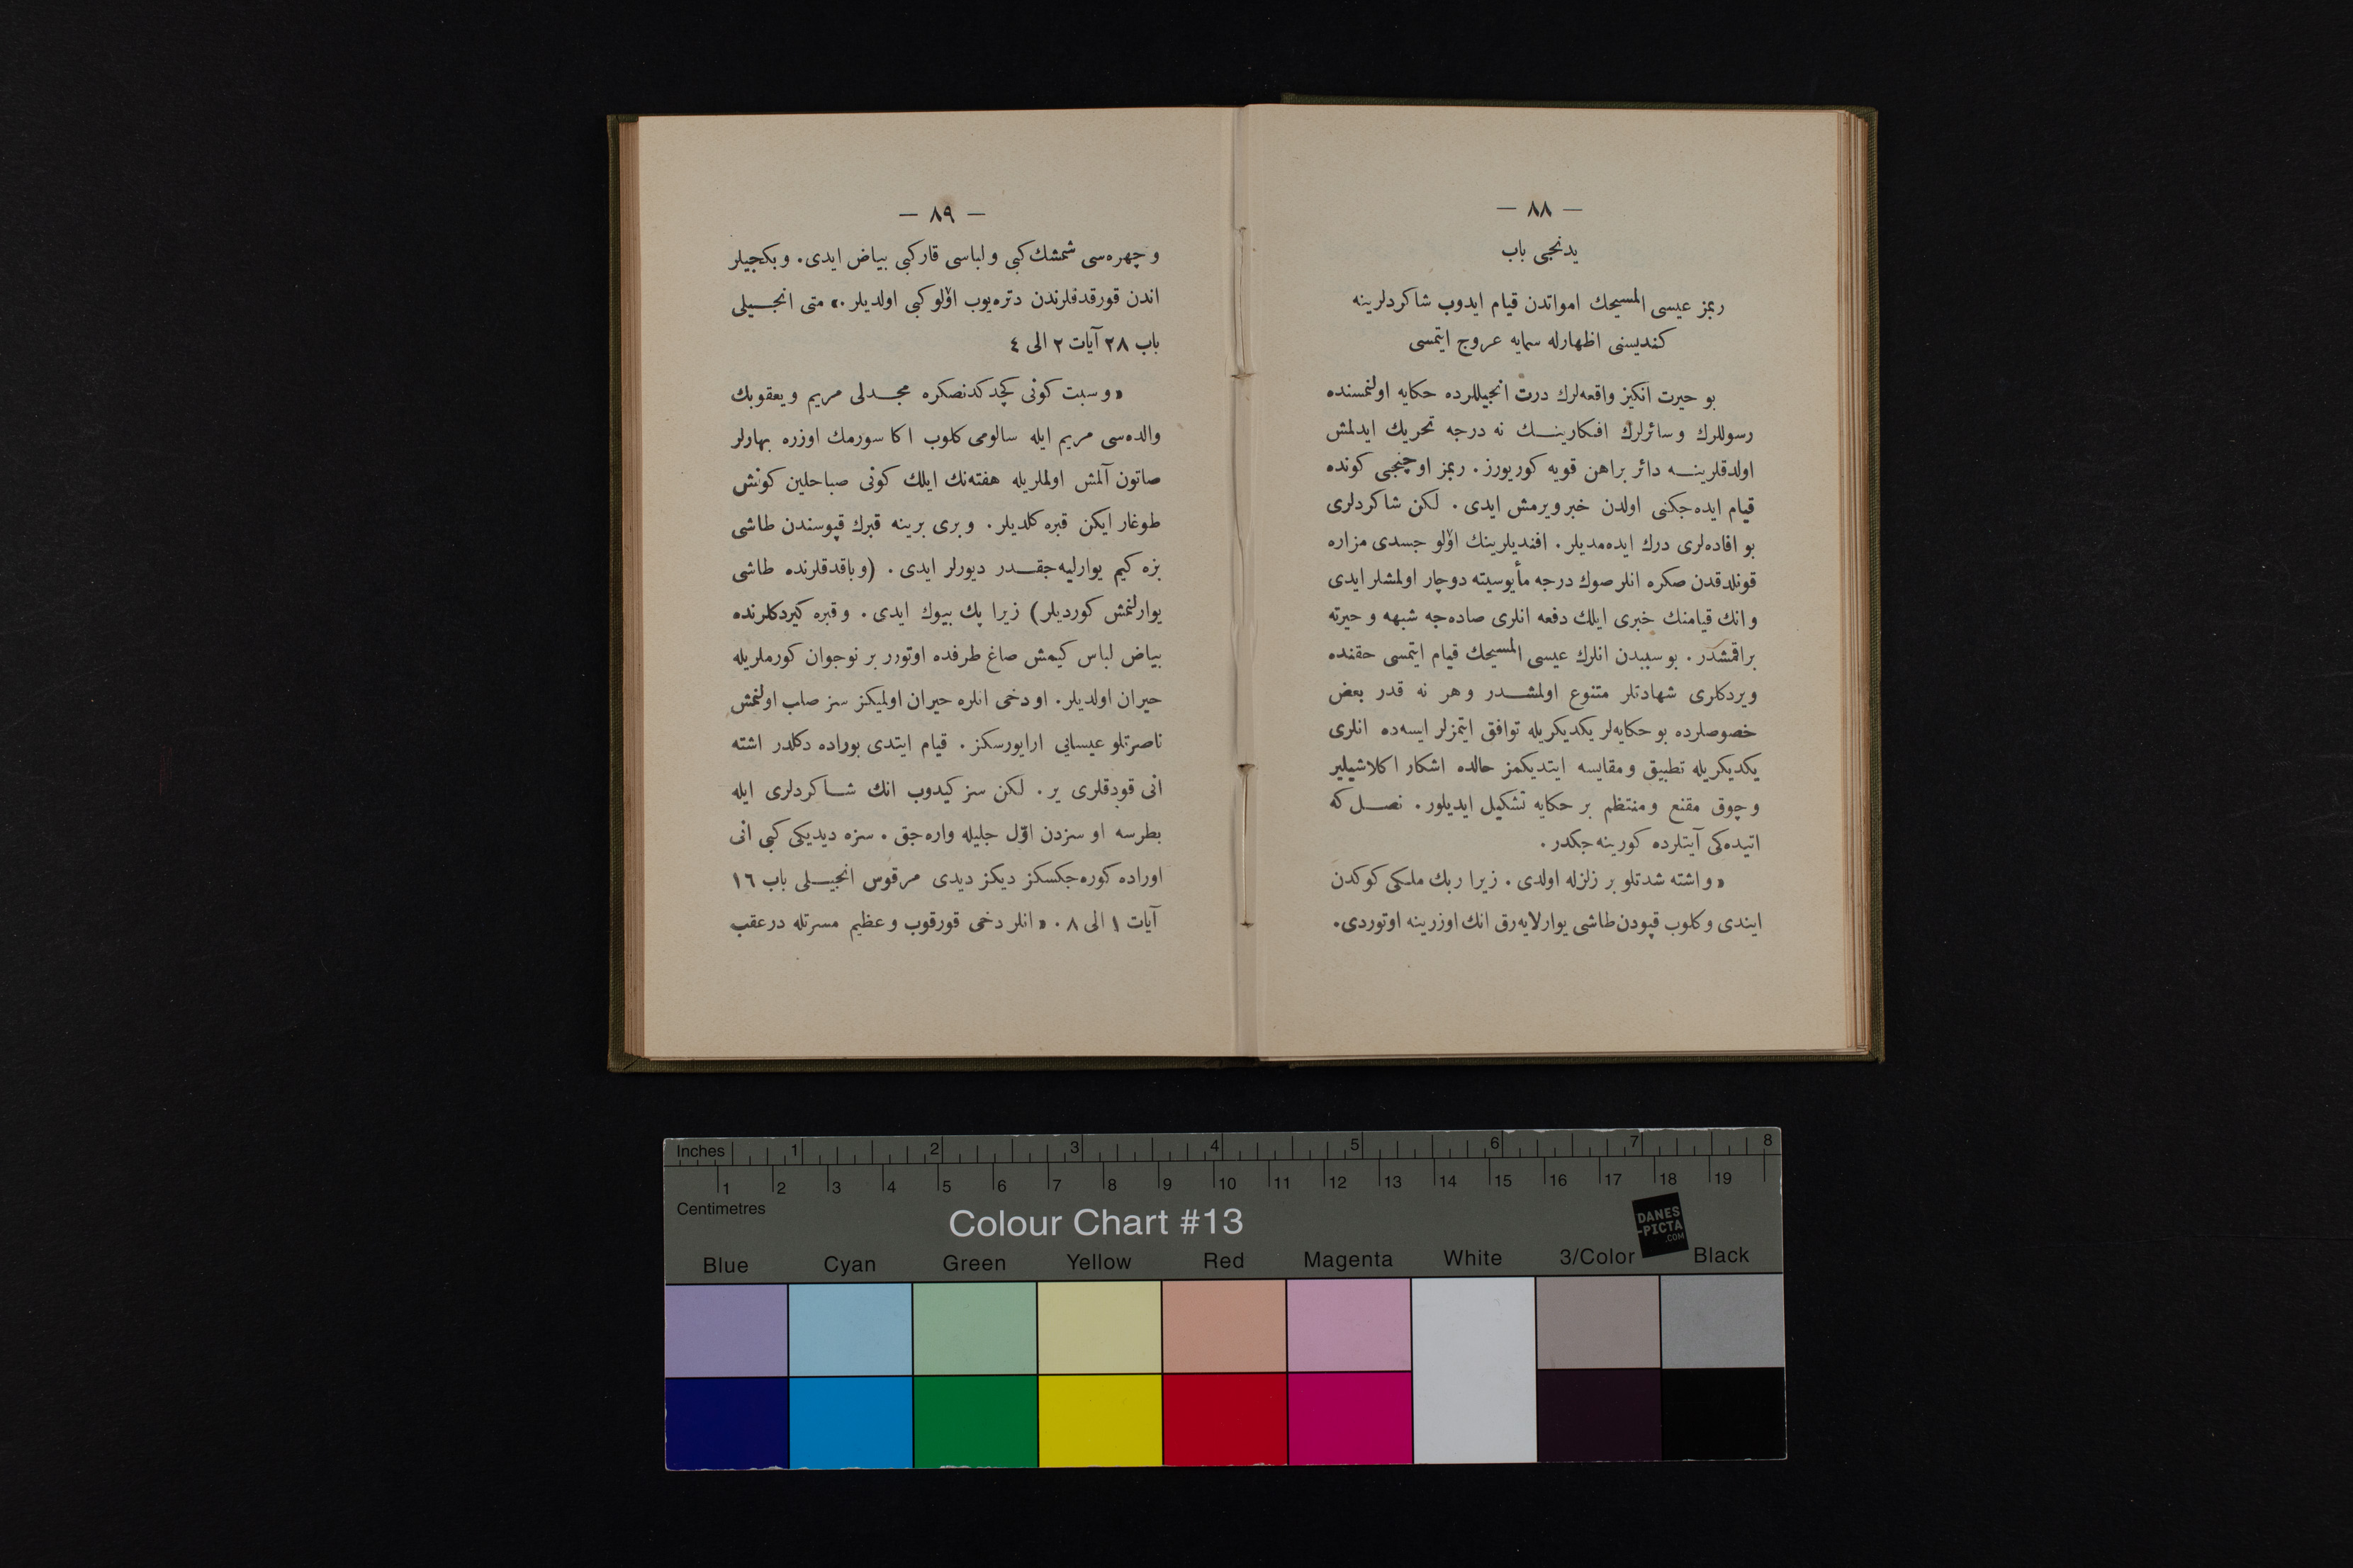 — ٨٨ —
يدنجى باب
ربمز عيسى المسيحك امواتدن قيام ايدوب شاكردلرينه
كنديسنى اظهارله سمايه عروج ايتمسى
بو حيرت انكيز واقعه‌لرك درت انجيللرده حكايه اولنمسنده
رسوللرك وسائرلرك افكارينك نه درجه تحريك ايدلمش
اولدقلرينه دائر براهن قويه كوريورز. ربمز اوچنجى كونده
قيام ايده‌جكنى اولدن خبر ويرمش ايدى. لكن شاكردلرى
بو افاده‌لرى درك ايده‌مديلر. افنديلرينك اۆلو جسدى مزاره
قونلدقدن صكره انلر صوك درجه مأيوسيته دوچار اولمشلر ايدى
وانك قيامنك خبرى ايلك دفعه انلرى صاده‌جه شبهه و حيرته
براقمشدر. بو سببدن انلرك عيسى المسيحك قيام ايتمسى حقنده
ويردكلرى شهادتلر متنوع اولمشدر وهر نه قدر بعض
خصوصلرده بو حكايه‌لر يكديكريله توافق ايتمزلر ايسه‌ده انلرى
يكديكريله تطبيق ومقايسه ايتديكمز حالده اشكار اكلاشيلير
وچوق مقنع ومنتظم بر حكايه تشكيل ايديلور. نصل كه
اتيده‌كى آيتلرده كورينه‌جكدر.
«واشته شدتلو بر زلزله اولدى. زيرا ربك ملكى كوكدن
ايندى وكلوب قپودن طاشى يوارلايه‌رق انك اوزرينه اوتوردى.
— ٨٩ —
وچهره‌سى شمشك كبى ولباسى قار كبى بياض ايدى. وبكجيلر
اندن قورقدقلرندن دتره‌يوب اۆلو كبى اولديلر.» متى انجيلى
باب ٢٨ آيات ٢ الى ٤
«وسبت كونى كچدكدنصكره مجدلى مريم ويعقوبك
والده‌سى مريم ايله سالومى كلوب اكا سورمك اوزره بهارلر
صاتون آلمش اولملريله هفته‌نك ايلك كونى صباحلين كونش
طوغار ايكن قبره كلديلر. وبرى برينه قبرك قپوسندن طاشى
بزه كيم يوارليه‌جقدر ديورلر ايدى. (وباقدقلرنده طاشى
يوارلنمش كورديلر) زيرا پك بيوك ايدى. وقبره كيردكلرنده
بياض لباس كيمش صاغ طرفده اوتورر بر نوجوان كورملريله
حيران اولديلر. او دخى انلره حيران اولميكز سز صلب اولنمش
ناصرتلو عيسايى ارايورسكز. قيام ايتدى بوراده دكلدر اشته
انى قودقلرى ير. لكن سز كيدوب انك شاكردلرى ايله
بطرسه او سزدن اوّل جليله واره‌جق. سزه ديديكى كبى انى
اوراده كوره‌جكسكز ديكز ديدى مرقوس انجيلى باب ١٦
آيات ١ الى ٨. «انلر دخى قورقوب وعظيم مسرتله درعقب
Inches 1 2 3 4 5 6 7 8
1 2 3 4 5 6 7 8 9 10 11 12 13 14 15 16 17 18 19
Centimetres
Colour Chart #13
DANES
-PICTA
.COM
Blue Cyan Green Yellow Red Magenta White 3/Color Black